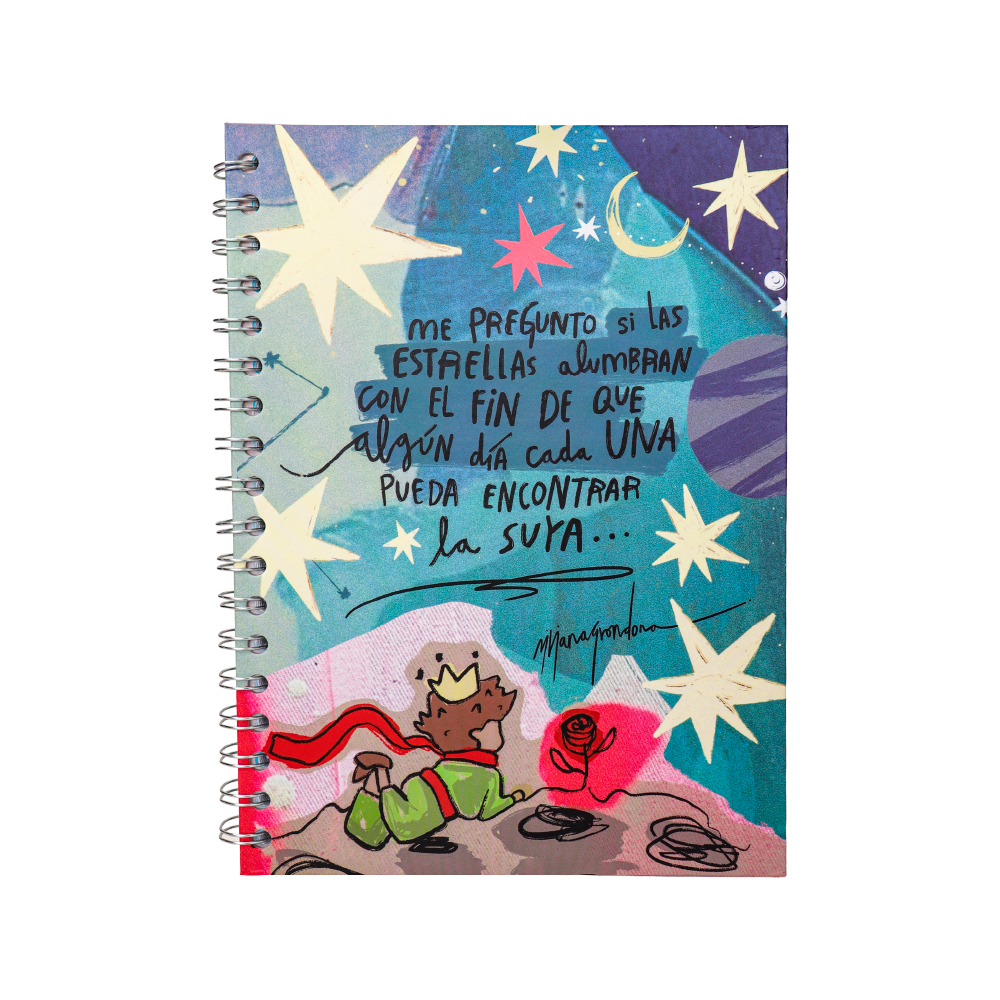 ME PREGUNTO si LAS
ESTRELLAS alUMBRAN
CON EL FIN DE QUE
algún día cada UNA
PUEDA ENCONTRAR
la SUYA...
Marianagrondona